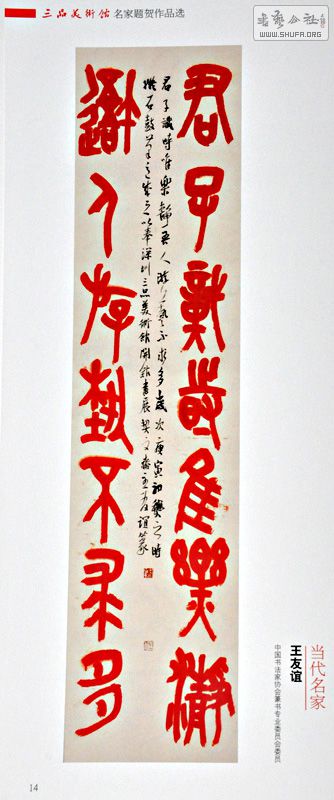 三品美術館 名家题贺作品选
书艺公社
WWW.SHUFA.ORG
君子識時隹樂靜
吾人游埶不求多
君子識時唯樂靜吾人游藝不求多歲次庚寅初之時
石鼓筆意成之以奉深圳三品美術館開館書展契文齋主友誼篆
当代名家
王友谊
中国书法家协会篆书专业委员会委员
14